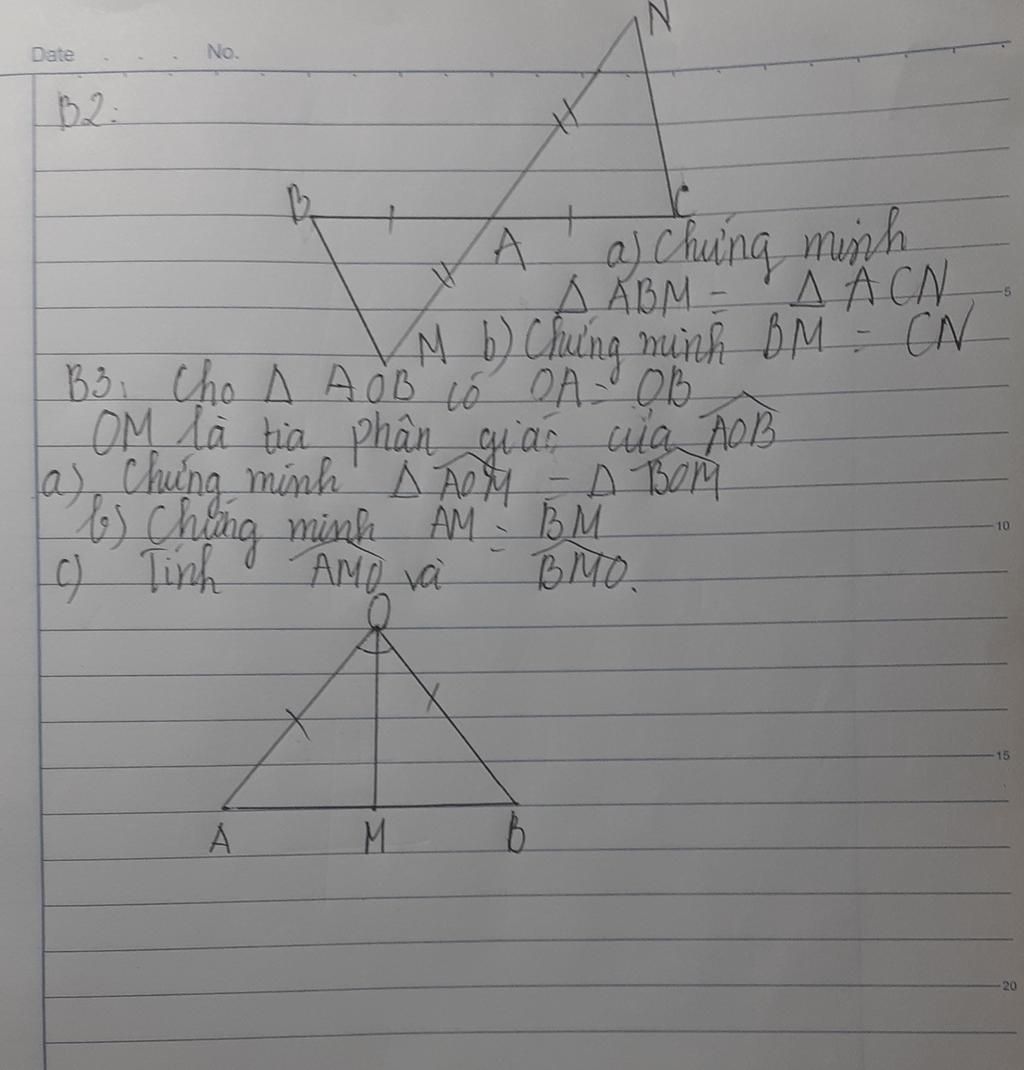 Date . . . No.
N
B2:
B
C
A
a) Chứng minh
Δ ABM = Δ ACN
5
M
b) Chứng minh BM = CN
B3: Cho Δ AOB có OA = OB
OM là tia phân giác của AOB
a) Chứng minh Δ AOM = Δ BOM
b) Chứng minh AM = BM
10
c) Tính AMO và BMO.
O
15
A M B
20